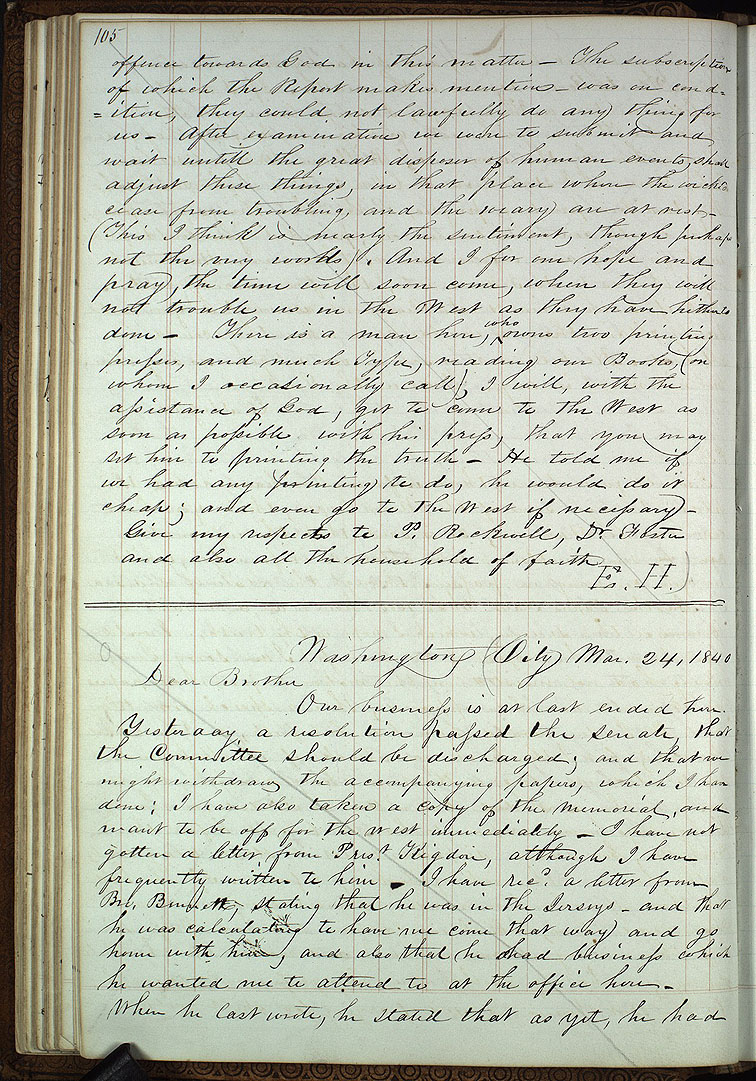 105
offence towards God in this matter — The subscription
of which the Report makes mention — was on cond=
=ition, they could not lawfully do any thing for
us — After examination we were to submit and
wait untill the great disposer of human events, shall
adjust these things, in that place where the wicked
cease from troubling, and the weary are at rest —
(This I think is nearly the sentiment, though perhaps
not the very words). And I for one hope and
pray, the time will soon come, when they will
not trouble us in the West as they have hitherto
done — There is a man here, who owns two printing
presses, and much Type, reading our Books, (on
whom I occasionally call), I will, with the
assistance of God, get to come to the West as
soon as possible with his press, that you may
set him to printing the truth — He told me if
we had any printing to do, he would do it
cheap; and even go to the West if necessary —
Give my respects to P. Rockwell, Dr. Foster
and also all the household of faith,
Es. H.)
Washington (City) Mar. 24, 1840
Dear Brother
Our business is at last ended here.
Yesterday a resolution passed the senate, that
the Committee should be discharged; and that we
might withdraw the accompanying papers, which I have
done; I have also taken a copy of the memorial, and
want to be off for the west immediately — I have not
gotten a letter from Prest. Rigdon, although I have
frequently written to him — I have recd. a letter from
Bro. Bennett, stating that he was in the Jerseys — and that
he was calculating to have me come that way and go
home with him, and also that he had business which
he wanted me to attend to at the office here —
When he last wrote, he stated that as yet, he had